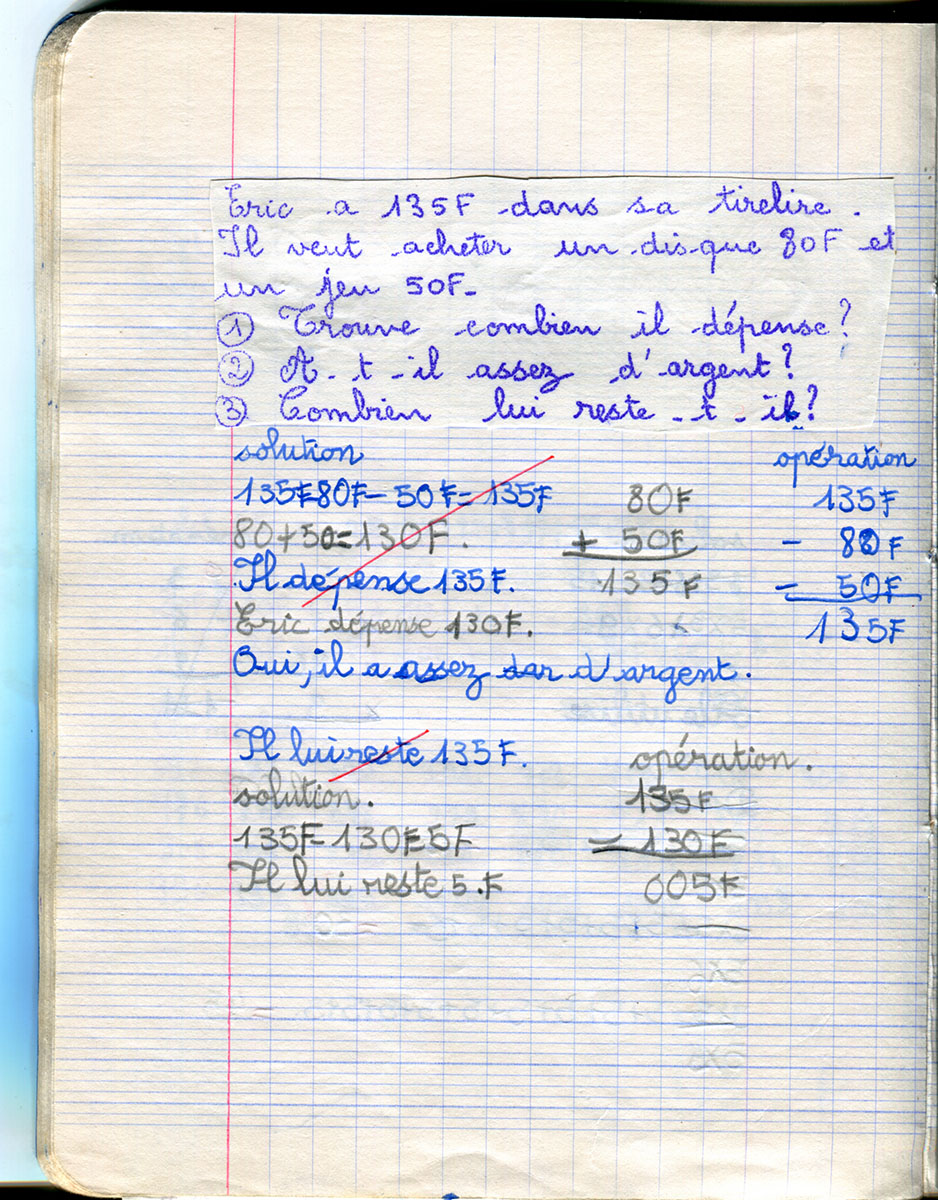 Eric a 135F dans sa tirelire.
Il veut acheter un disque 80F et
un jeu 50F-
① Trouve combien il dépense?
② A-t-il assez d'argent?
③ Combien lui reste-t-il?
solution opération
135F-80F-50F=135F 80F 135F
80+50=130F. + 50F - 80F
Il dépense 135F. 135F - 50F
Eric dépense 130F. 135F
Oui, il a assez dar d'argent.
Il lui reste 135F. opération.
solution. 135F
135F-130F=5F - 130F
Il lui reste 5.F 005F